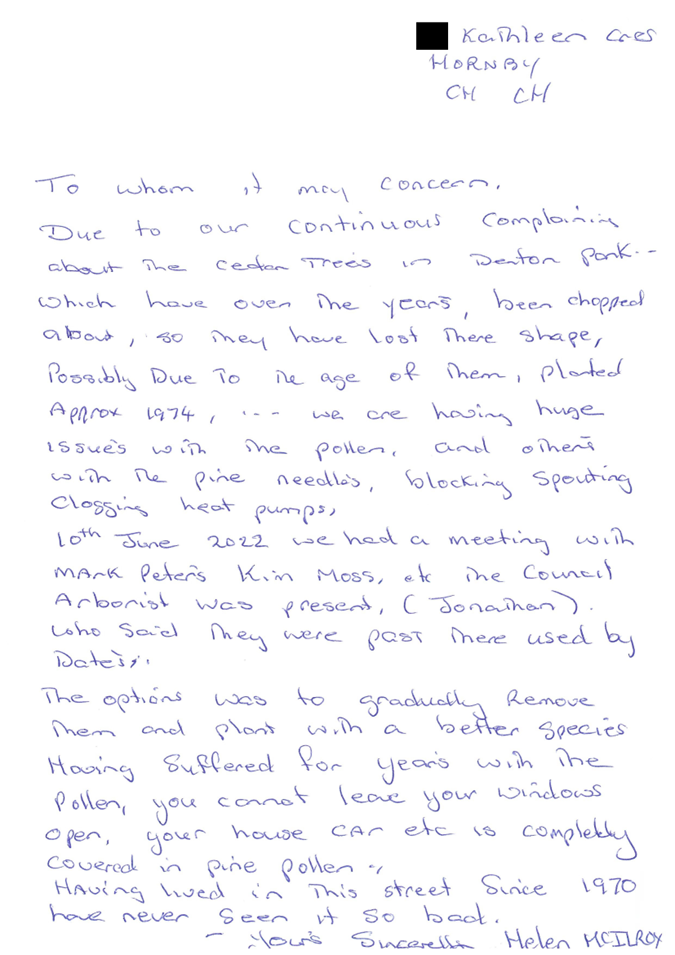 Kathleen Cres
HORNBY
CH CH
To whom it may concern.
Due to our continuous complaining
about the cedar Trees in Denton Park...
which have over the years, been chopped
about, so they have lost there shape,
Possibly Due To the age of them, planted
Approx 1974, ... we are having huge
issues with the pollen, and others
with the pine needles, blocking spouting
Clogging heat pumps,
10th June 2022 we had a meeting with
MARK Peters Kim Moss, etc the Council
Arborist was present, (Jonathan).
who said They were past there used by
Dates,..
The options was to gradually Remove
them and plant with a better species
Having Suffered for years with the
Pollen, you cannot leave your windows
open, your house CAr etc is completely
covered in pine pollen.,
HAving lived in This street Since 1970
have never seen it so bad.
- Yours Sincerelly Helen MCILROY